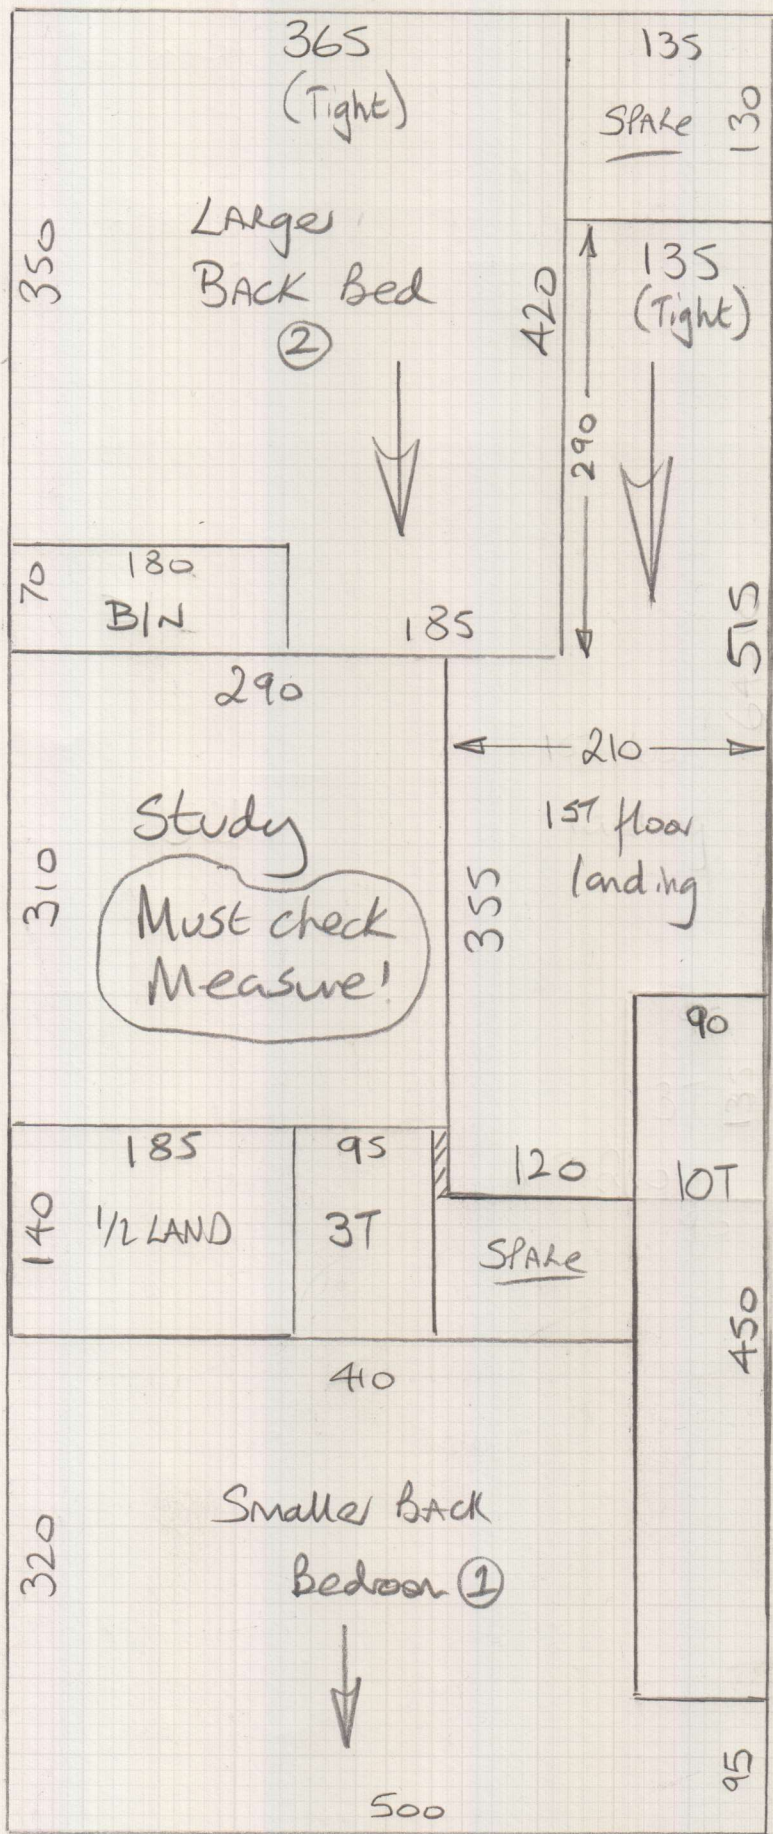 365
(Tight)
135
SPARe
130
350
LARger
BACK Bed
②
420
135
(Tight)
290
70
180
B/N
185
515
290
210
1ST floor
landing
Study
Must check
Measure!
310
355
90
185
95
120
10T
140
1/2 LAND
3T
SPARe
450
410
Smaller BACK
Bedroom ①
320
95
500